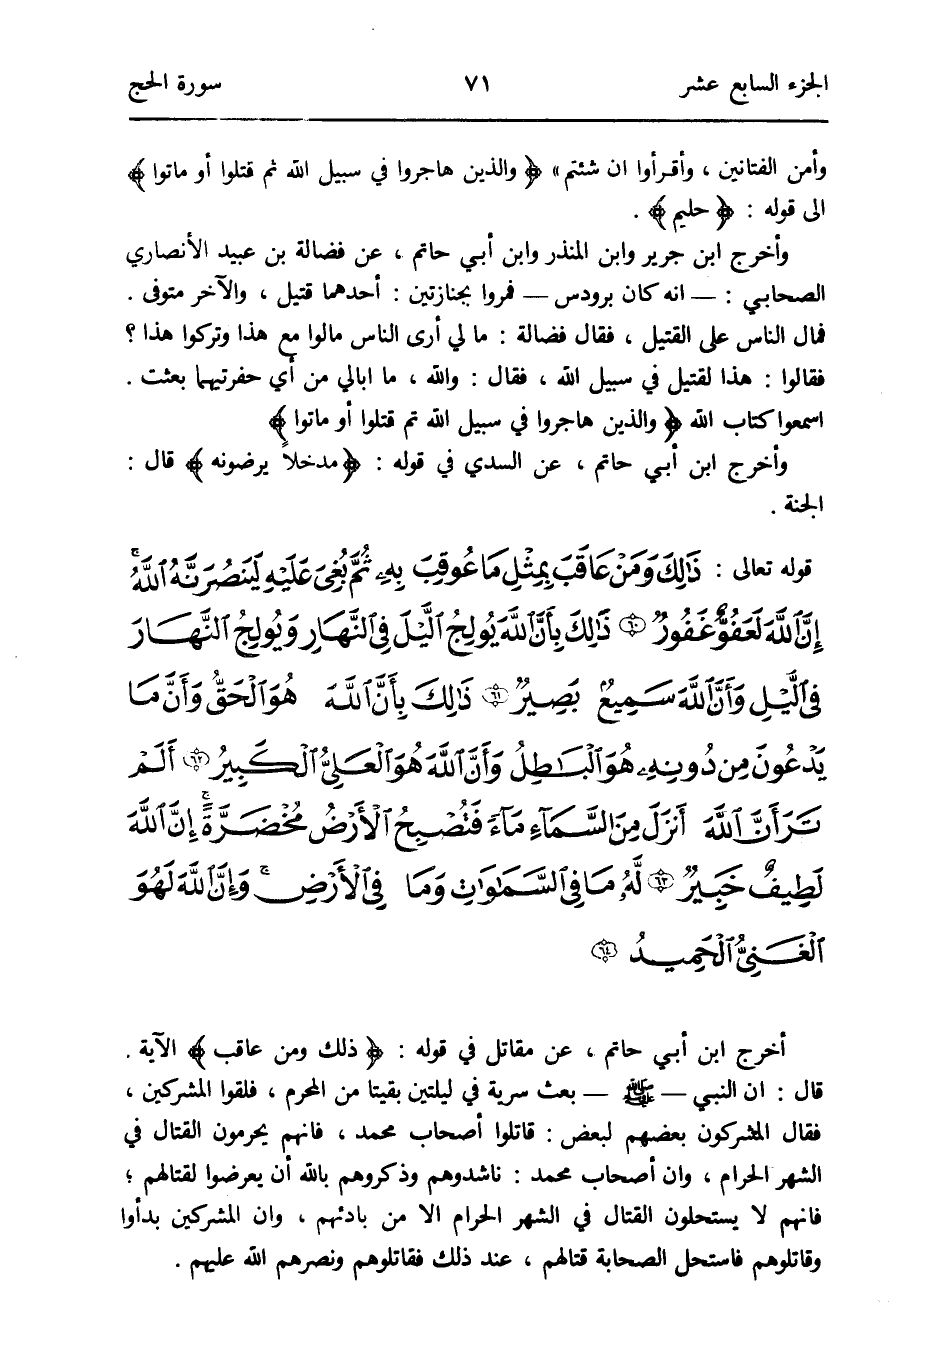 الجزء السابع عشر ٧١ سورة الحج
وأمن الفتانين ، وأقرأوا ان شئتم » ﴿ والذين هاجروا في سبيل الله ثم قتلوا أو ماتوا ﴾
الى قوله : ﴿ حليم ﴾ .
وأخرج ابن جرير وابن المنذر وابن أبي حاتم ، عن فضالة بن عبيد الأنصاري
الصحابي : — انه كان برودس — فمروا بجنازتين : أحدهما قتيل ، والآخر متوفى .
فمال الناس على القتيل ، فقال فضالة : ما لي أرى الناس مالوا مع هذا وتركوا هذا ؟
فقالوا : هذا لقتيل في سبيل الله ، فقال : والله ، ما ابالي من أي حفرتيهما بعثت .
اسمعوا كتاب الله ﴿ والذين هاجروا في سبيل الله ثم قتلوا أو ماتوا ﴾
وأخرج ابن أبي حاتم ، عن السدي في قوله : ﴿ مدخلاً يرضونه ﴾ قال :
الجنة .
قوله تعالى : ذَٰلِكَ وَمَنْ عَاقَبَ بِمِثْلِ مَا عُوقِبَ بِهِۦ ثُمَّ بُغِىَ عَلَيْهِ لَيَنصُرَنَّهُ ٱللَّهُ ۗ
إِنَّ ٱللَّهَ لَعَفُوٌّ غَفُورٌ ۝٦٠ ذَٰلِكَ بِأَنَّ ٱللَّهَ يُولِجُ ٱلَّيْلَ فِى ٱلنَّهَارِ وَيُولِجُ ٱلنَّهَارَ
فِى ٱلَّيْلِ وَأَنَّ ٱللَّهَ سَمِيعٌۢ بَصِيرٌ ۝٦١ ذَٰلِكَ بِأَنَّ ٱللَّهَ هُوَ ٱلْحَقُّ وَأَنَّ مَا
يَدْعُونَ مِن دُونِهِۦ هُوَ ٱلْبَـٰطِلُ وَأَنَّ ٱللَّهَ هُوَ ٱلْعَلِىُّ ٱلْكَبِيرُ ۝٦٢ أَلَمْ
تَرَ أَنَّ ٱللَّهَ أَنزَلَ مِنَ ٱلسَّمَآءِ مَآءً فَتُصْبِحُ ٱلْأَرْضُ مُخْضَرَّةً ۗ إِنَّ ٱللَّهَ
لَطِيفٌ خَبِيرٌ ۝٦٣ لَّهُۥ مَا فِى ٱلسَّمَـٰوَٰتِ وَمَا فِى ٱلْأَرْضِ ۗ وَإِنَّ ٱللَّهَ لَهُوَ
ٱلْغَنِىُّ ٱلْحَمِيدُ ۝٦٤
أخرج ابن أبي حاتم ، عن مقاتل في قوله : ﴿ ذلك ومن عاقب ﴾ الآية .
قال : ان النبي — ﷺ — بعث سرية في ليلتين بقيتا من المحرم ، فلقوا المشركين ،
فقال المشركون بعضهم لبعض : قاتلوا أصحاب محمد ، فانهم يحرمون القتال في
الشهر الحرام ، وان أصحاب محمد : ناشدوهم وذكروهم بالله أن يعرضوا لقتالهم ؛
فانهم لا يستحلون القتال في الشهر الحرام الا من بادئهم ، وان المشركين بدأوا
وقاتلوهم فاستحل الصحابة قتالهم ، عند ذلك فقاتلوهم ونصرهم الله عليهم .